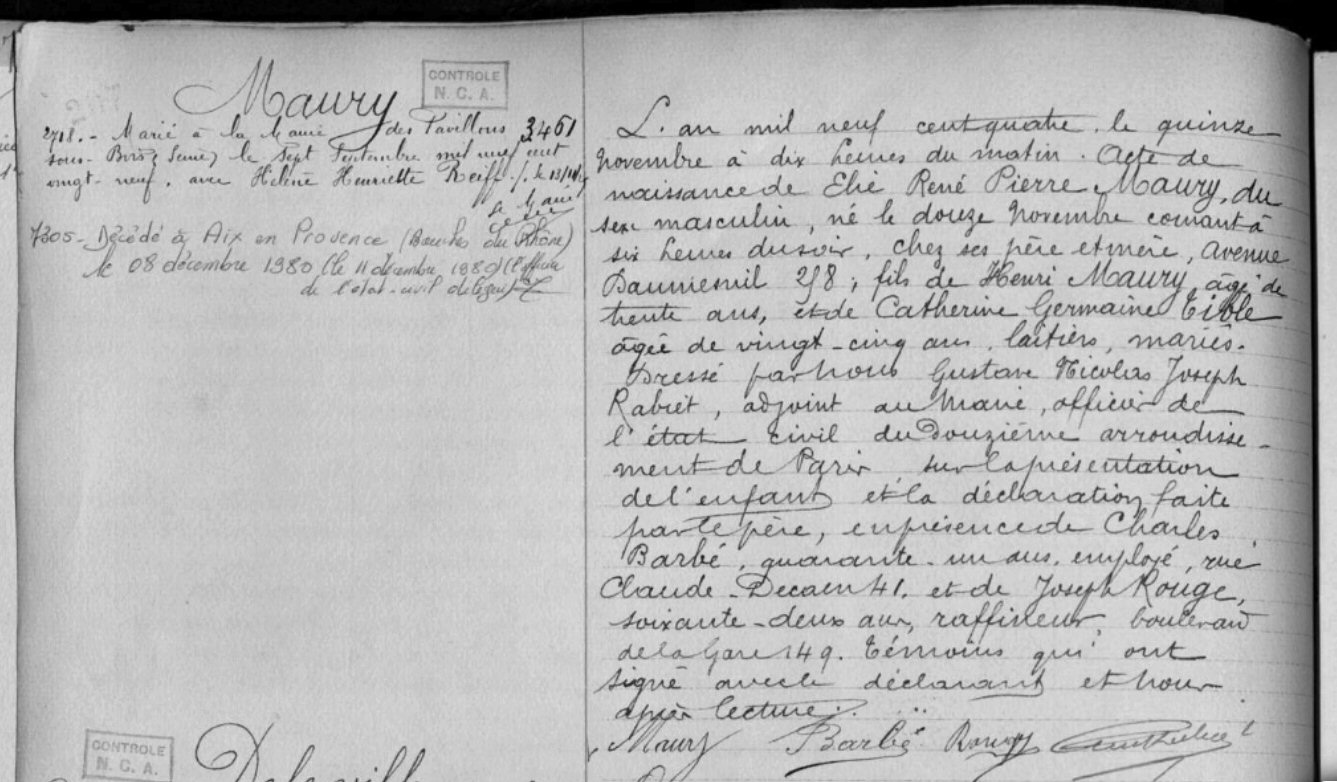 Maury
CONTROLE
N. C. A.
2718. - Marié à la Mairie des Pavillons
sous-Bois (Seine) le sept Septembre mil neuf cent
vingt-neuf, avec Hélène Henriette Reiff
le Maire
7305 - Décédé à Aix en Provence (Bouches du Rhône)
le 08 décembre 1980 (le 11 décembre 1980) (l'officier
de l'état-civil délégué)
3461
L'an mil neuf cent quatre, le quinze
novembre à dix heures du matin. Acte de
naissance de Elie René Pierre Maury, du
sexe masculin, né le douze novembre courant à
six heures du soir, chez ses père et mère, avenue
Daumesnil 278, fils de Henri Maury, âgé de
trente ans, et de Catherine Germaine
âgée de vingt-cinq ans, laitiers, mariés.
Dressé par nous Gustave Nicolas Joseph
Rabiet, adjoint au Maire, officier de
l'état civil du Douzième arrondisse-
ment de Paris sur la présentation
de l'enfant et la déclaration faite
par le père, en présence de Charles
Barbé, quarante-un ans, employé, rue
Claude-Decaen 41, et de Joseph Rouge,
soixante-deux ans, raffineur, boulevard
de la Gare 149. Témoins qui ont
signé avec le déclarant et nous
après lecture.
Maury Barbé Rouge
CONTROLE
N. C. A.